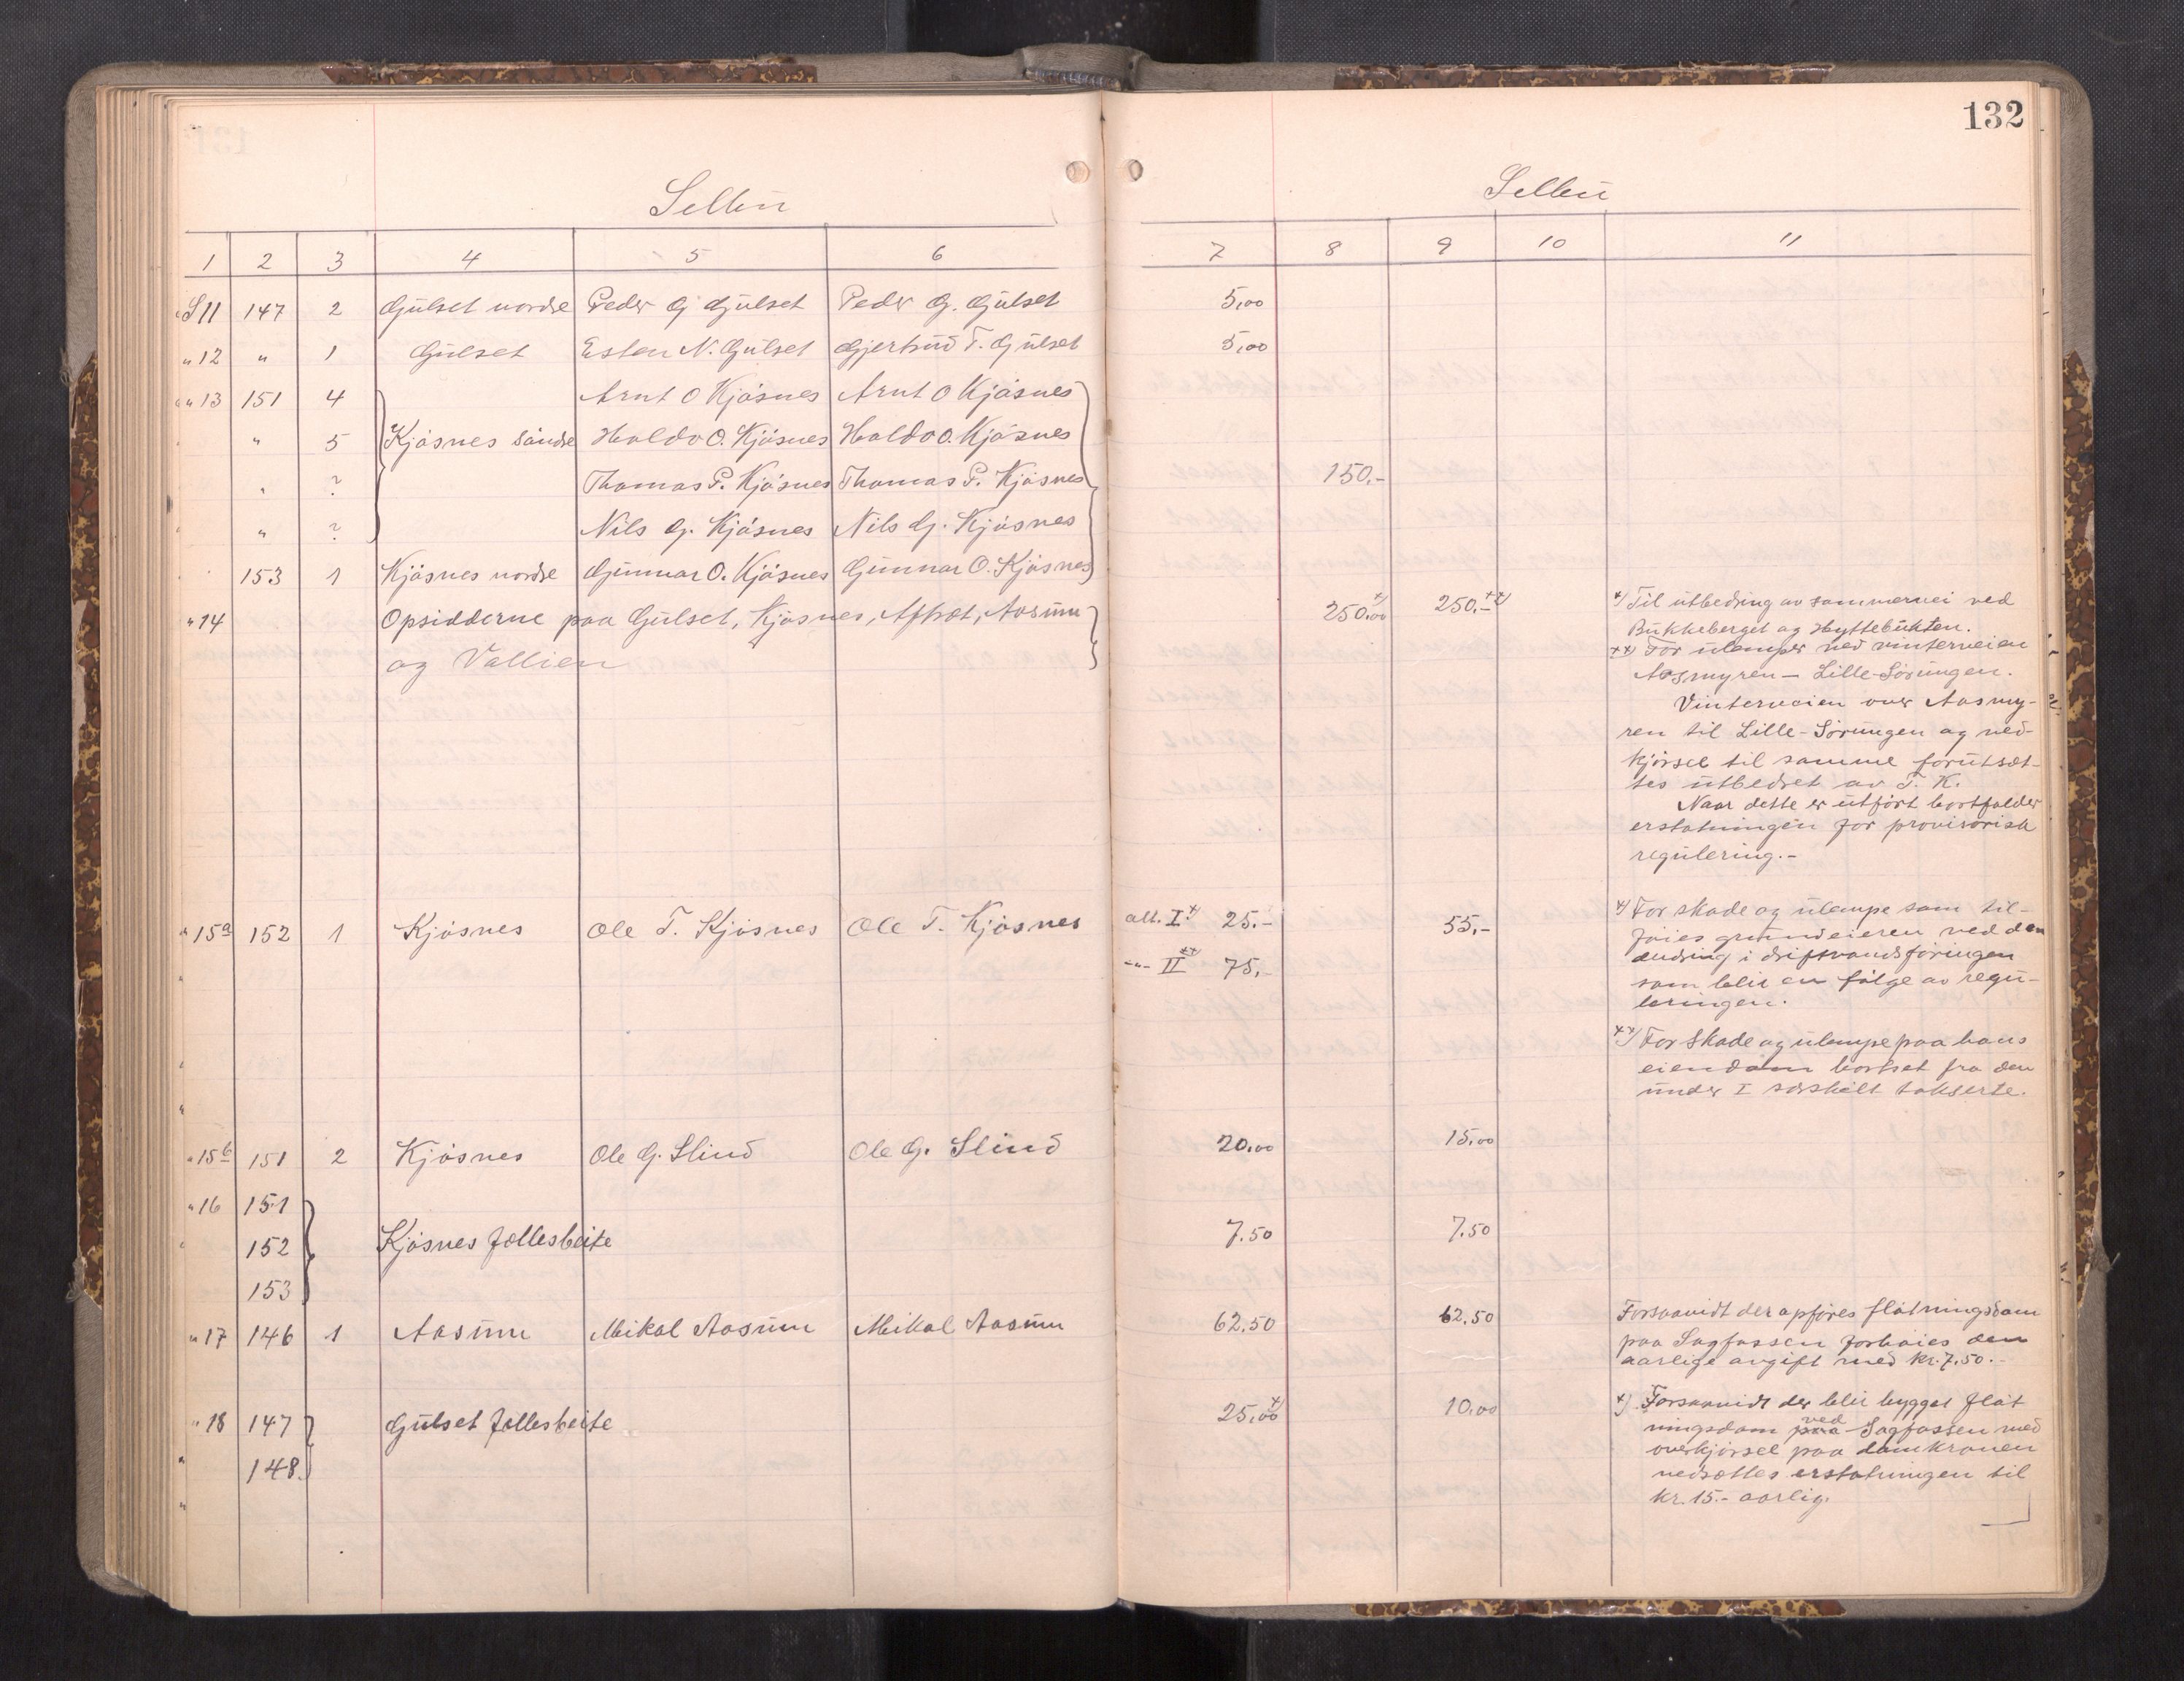 132
Selbu
Selbu
1 2 3 4 5 6 7 8 9 10 11
S 11 147 2 Gulset nordre Peder G Gulset Peder G. Gulset 5,00
" 12 " 1 Gulset Esten N. Gulset Gjertrud T. Gulset 5,00
" 13 151 4 Arnt O Kjösnes Arnt O Kjösnes
" 5 Kjösnes söndre Haldo O. Kjösnes Haldo O. Kjösnes
" ? Thomas P. Kjösnes Thomas P. Kjösnes 150.-
" ? Nils G. Kjösnes Nils G. Kjösnes
153 1 Kjösnes nordre Gunnar O. Kjösnes Gunnar O. Kjösnes
" 14 Opsidderne paa Gulset, Kjösnes, Aftret, Aasmu 250,00 x) 250.- xx)
og Vallien
x) Til utbedring av sommervei ved
Bukkeberget og Hyttebukten.
xx) For ulemper ved vinterveien
Aasmyren - Lille-Sörungen.
Vinterveien over Aasmy-
ren til Lille-Sörungen og ned-
kjörsel til samme forutsæt-
tes utbedret av T. K.
Naar dette er utfört bortfalder
erstatningen for provisorisk
regulering.-
" 15a 152 1 Kjösnes Ole T. Kjösnes Ole T. Kjösnes alt. I x) 25.- 55,-
-"- II xx) 75,-
x) For skade og ulempe som til-
föies grundeieren ved den
endring i driftvandsföringen
som blir en fölge av regu-
leringen.
xx) For skade og ulempe paa hans
eiendom bortset fra den
under I særskilt takserte.
" 15b 151 2 Kjösnes Ole G. Slind Ole G. Slind 20,00 15,00
" 16 151
152 Kjösnes fællesbeite 7.50 7.50
153
" 17 146 1 Aasmu Mikal Aasmu Mikal Aasmu 62,50 62,50
Forsaavidt der opföres flötningsdam
paa Sagfossen forhöies den
aarlige avgift med kr. 7,50.-
" 18 147 Gulset fællesbeite 25,00 x) 10,00
148.
x) Forsaavidt der blir bygget flöt
ningsdam paa ved Sagfossen med
overkjörsel paa damkronen
nedsættes erstatningen til
kr. 15.- aarlig.